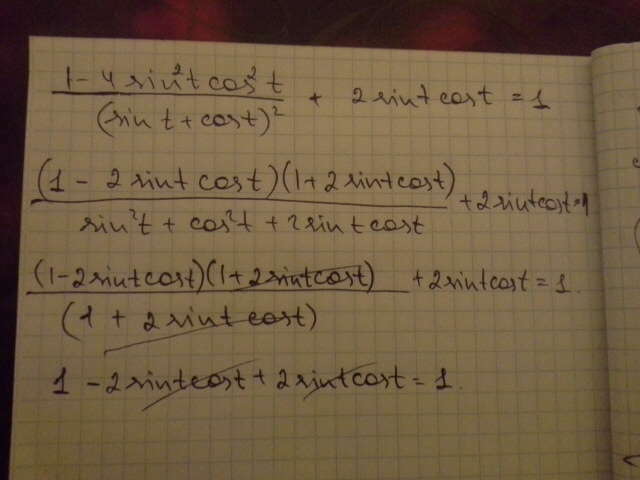 (1 - 4 sin²t cos²t)/(sin t + cos t)² + 2 sin t cos t = 1
((1 - 2 sin t cos t)(1 + 2 sin t cos t))/(sin²t + cos²t + 2 sin t cos t) + 2 sin t cos t = 1
((1 - 2 sin t cos t)(1 + 2 sin t cos t))/(1 + 2 sin t cos t) + 2 sin t cos t = 1.
1 - 2 sin t cos t + 2 sin t cos t = 1.